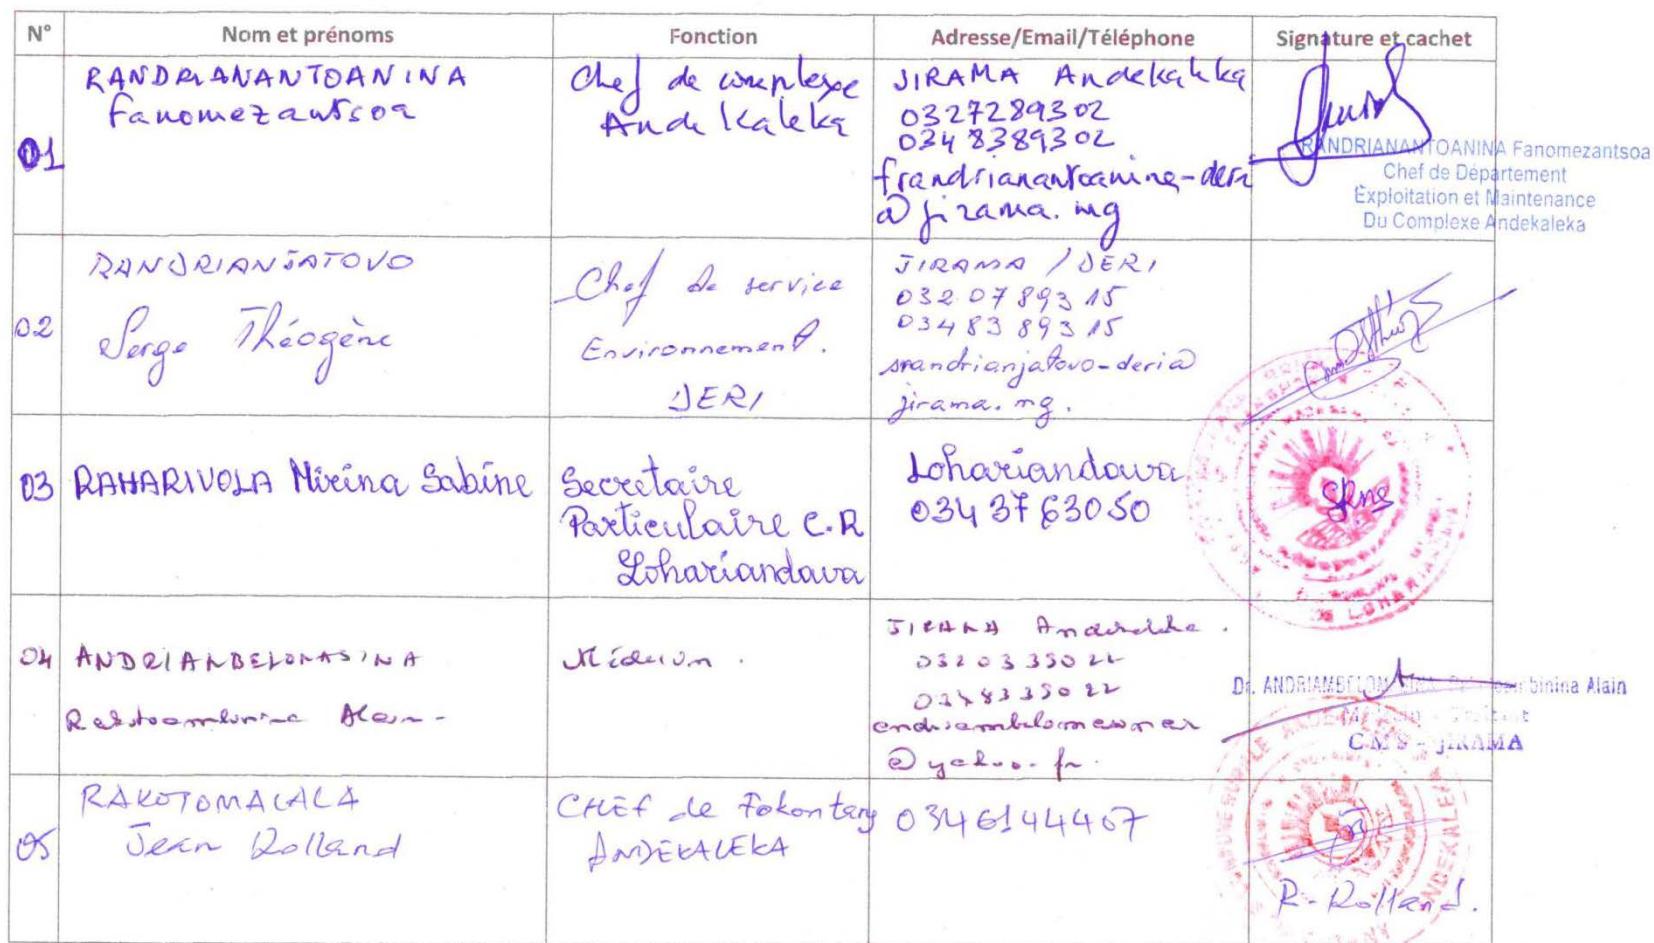 N° Nom et prénoms Fonction Adresse/Email/Téléphone Signature et cachet
01 RANDRIANANTOANINA Fanomezantsoa
Chef de complexe Andekaleka
JIRAMA Andekaleka
0327289302
0348389302
frandrianantoanina-deri
@jirama.mg
RANDRIANANTOANINA Fanomezantsoa
Chef de Département
Exploitation et Maintenance
Du Complexe Andekaleka
02 RANDRIANJATOVO
Serge Théogène
Chef de service
Environnement.
DERI
JIRAMA / DERI
032 07 893 15
034 83 893 15
srandrianjatovo-deri@
jirama.mg.
03 RAHARIVOLA Mirina Sabine
Secretaire
Particulaire C.R
Lohariandava
Lohariandava
034 37 630 50
LOHARIANDAVA
04 ANDRIAMBELOMASINA
Alain
Médecin.
JIRAMA
032 03 350 22
034 83 350 22
@yahoo.fr.
Dr. ANDRIAMBELOM binina Alain
CMS - JIRAMA
05 RAKOTOMALALA
Jean Rolland
CHEF de Fokontany
ANDEKALEKA
0346144467
ANDEKALEKA
R. Rolland.